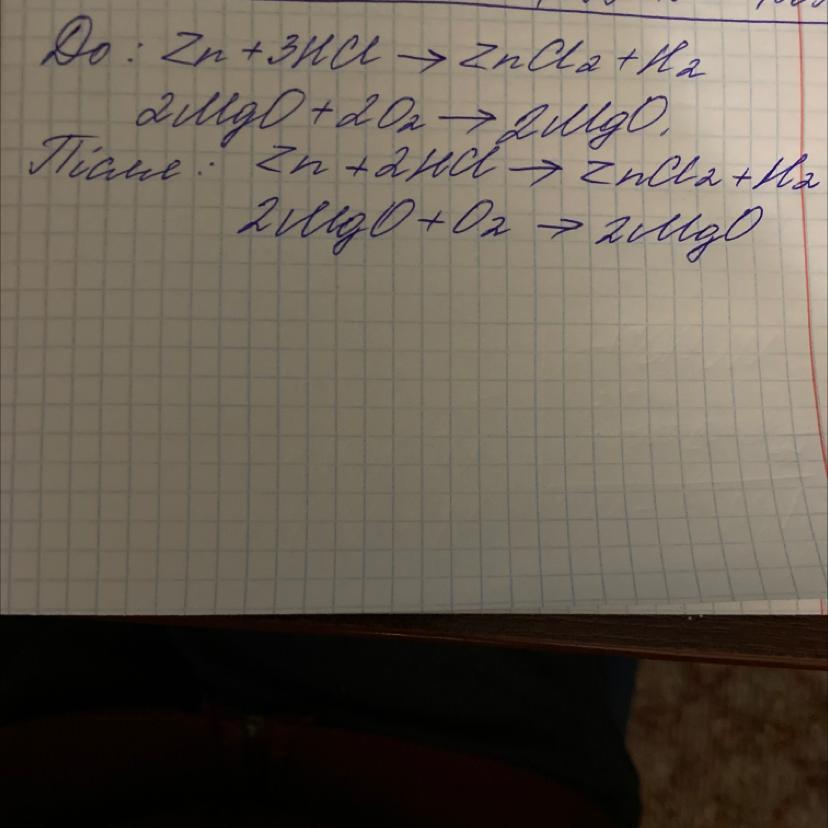 До: Zn + 3HCl → ZnCl₂ + H₂
2MgO + 2O₂ → 2MgO.
Після: Zn + 2HCl → ZnCl₂ + H₂
2MgO + O₂ → 2MgO